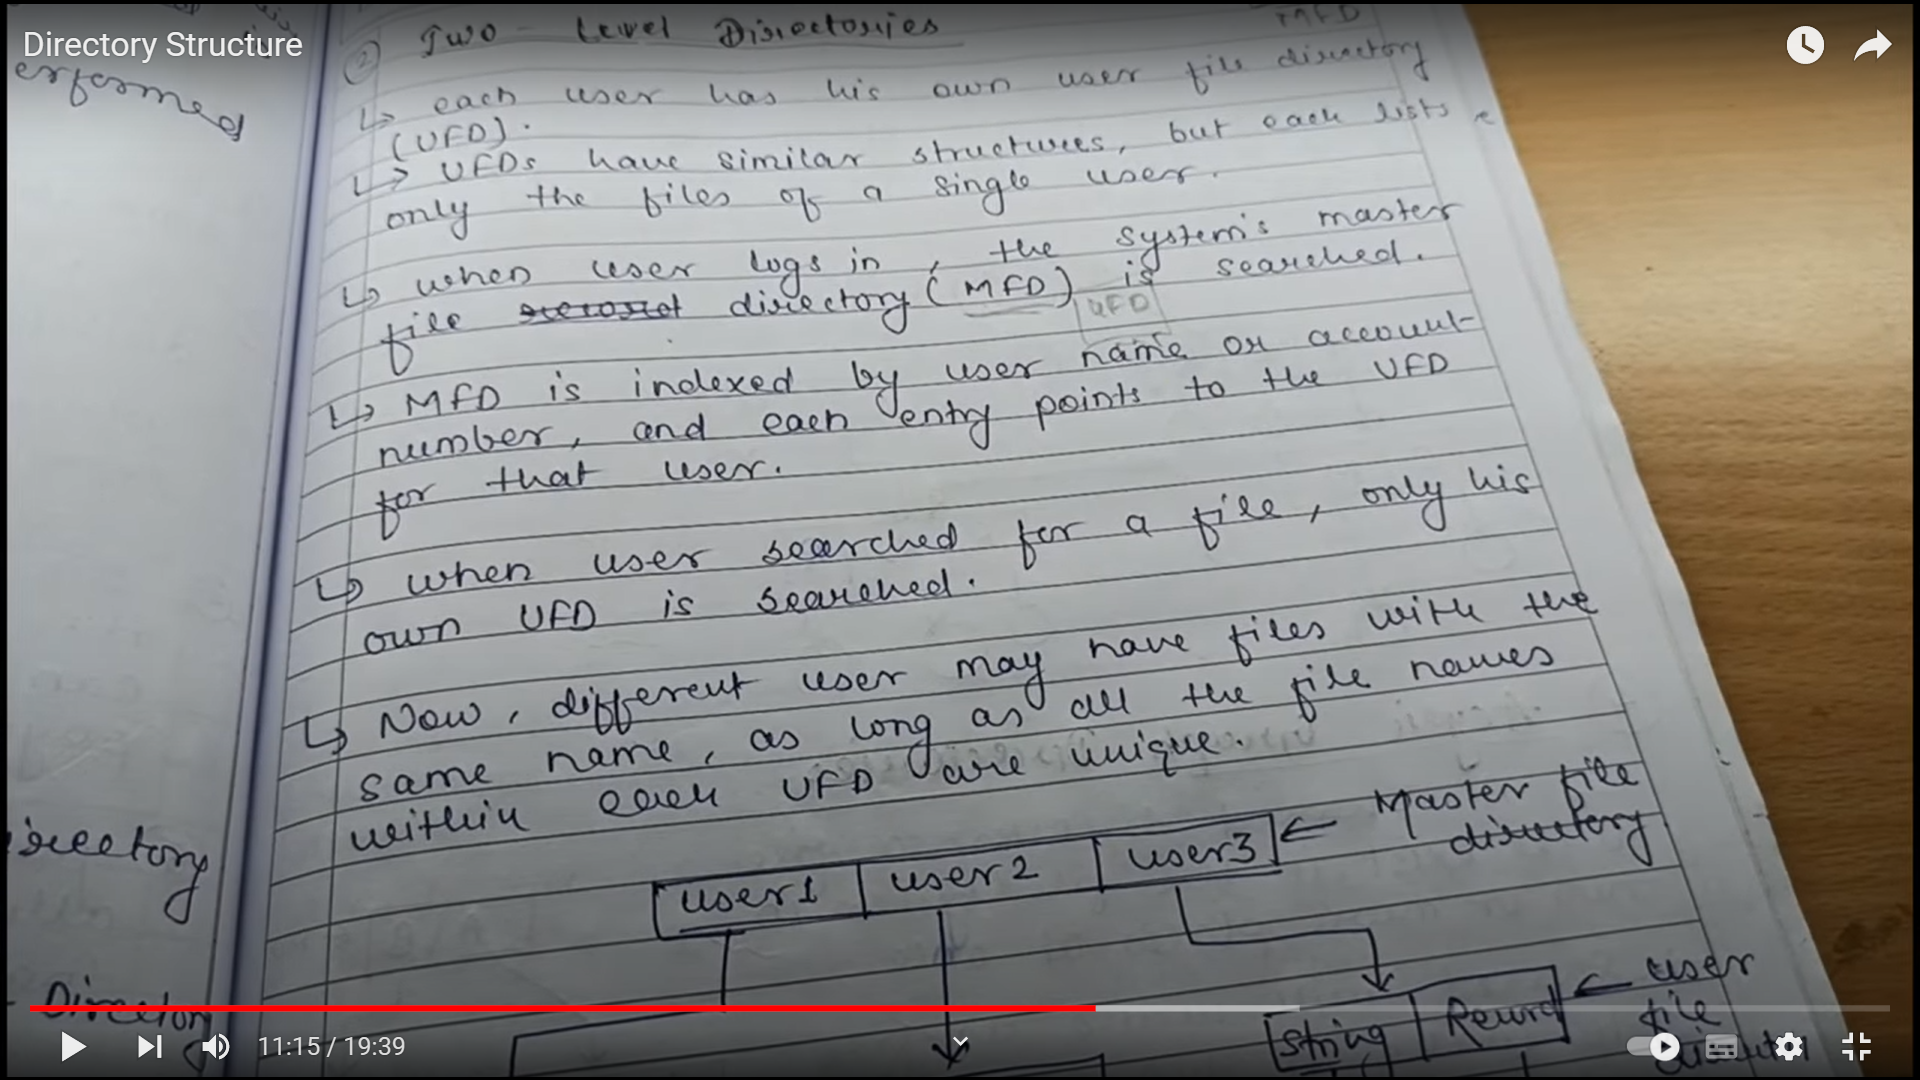 Directory Structure
erformed
② Two - Level Directories
MFD
↳ each user has his own user file directory
(UFD).
↳ UFDs have similar structures, but each lists
only the files of a single user.
↳ when user logs in, the system's master
file directory (MFD) is searched.
UFD
↳ MFD is indexed by user name or account
number, and each entry points to the UFD
for that user.
↳ when user searched for a file, only his
own UFD is searched.
↳ Now, different user may have files with the
same name, as long as all the file names
within each UFD are unique.
irectory
user1 user2 user3 ← Master file
directory
Directory
string Record ← user
file
11:15 / 19:39